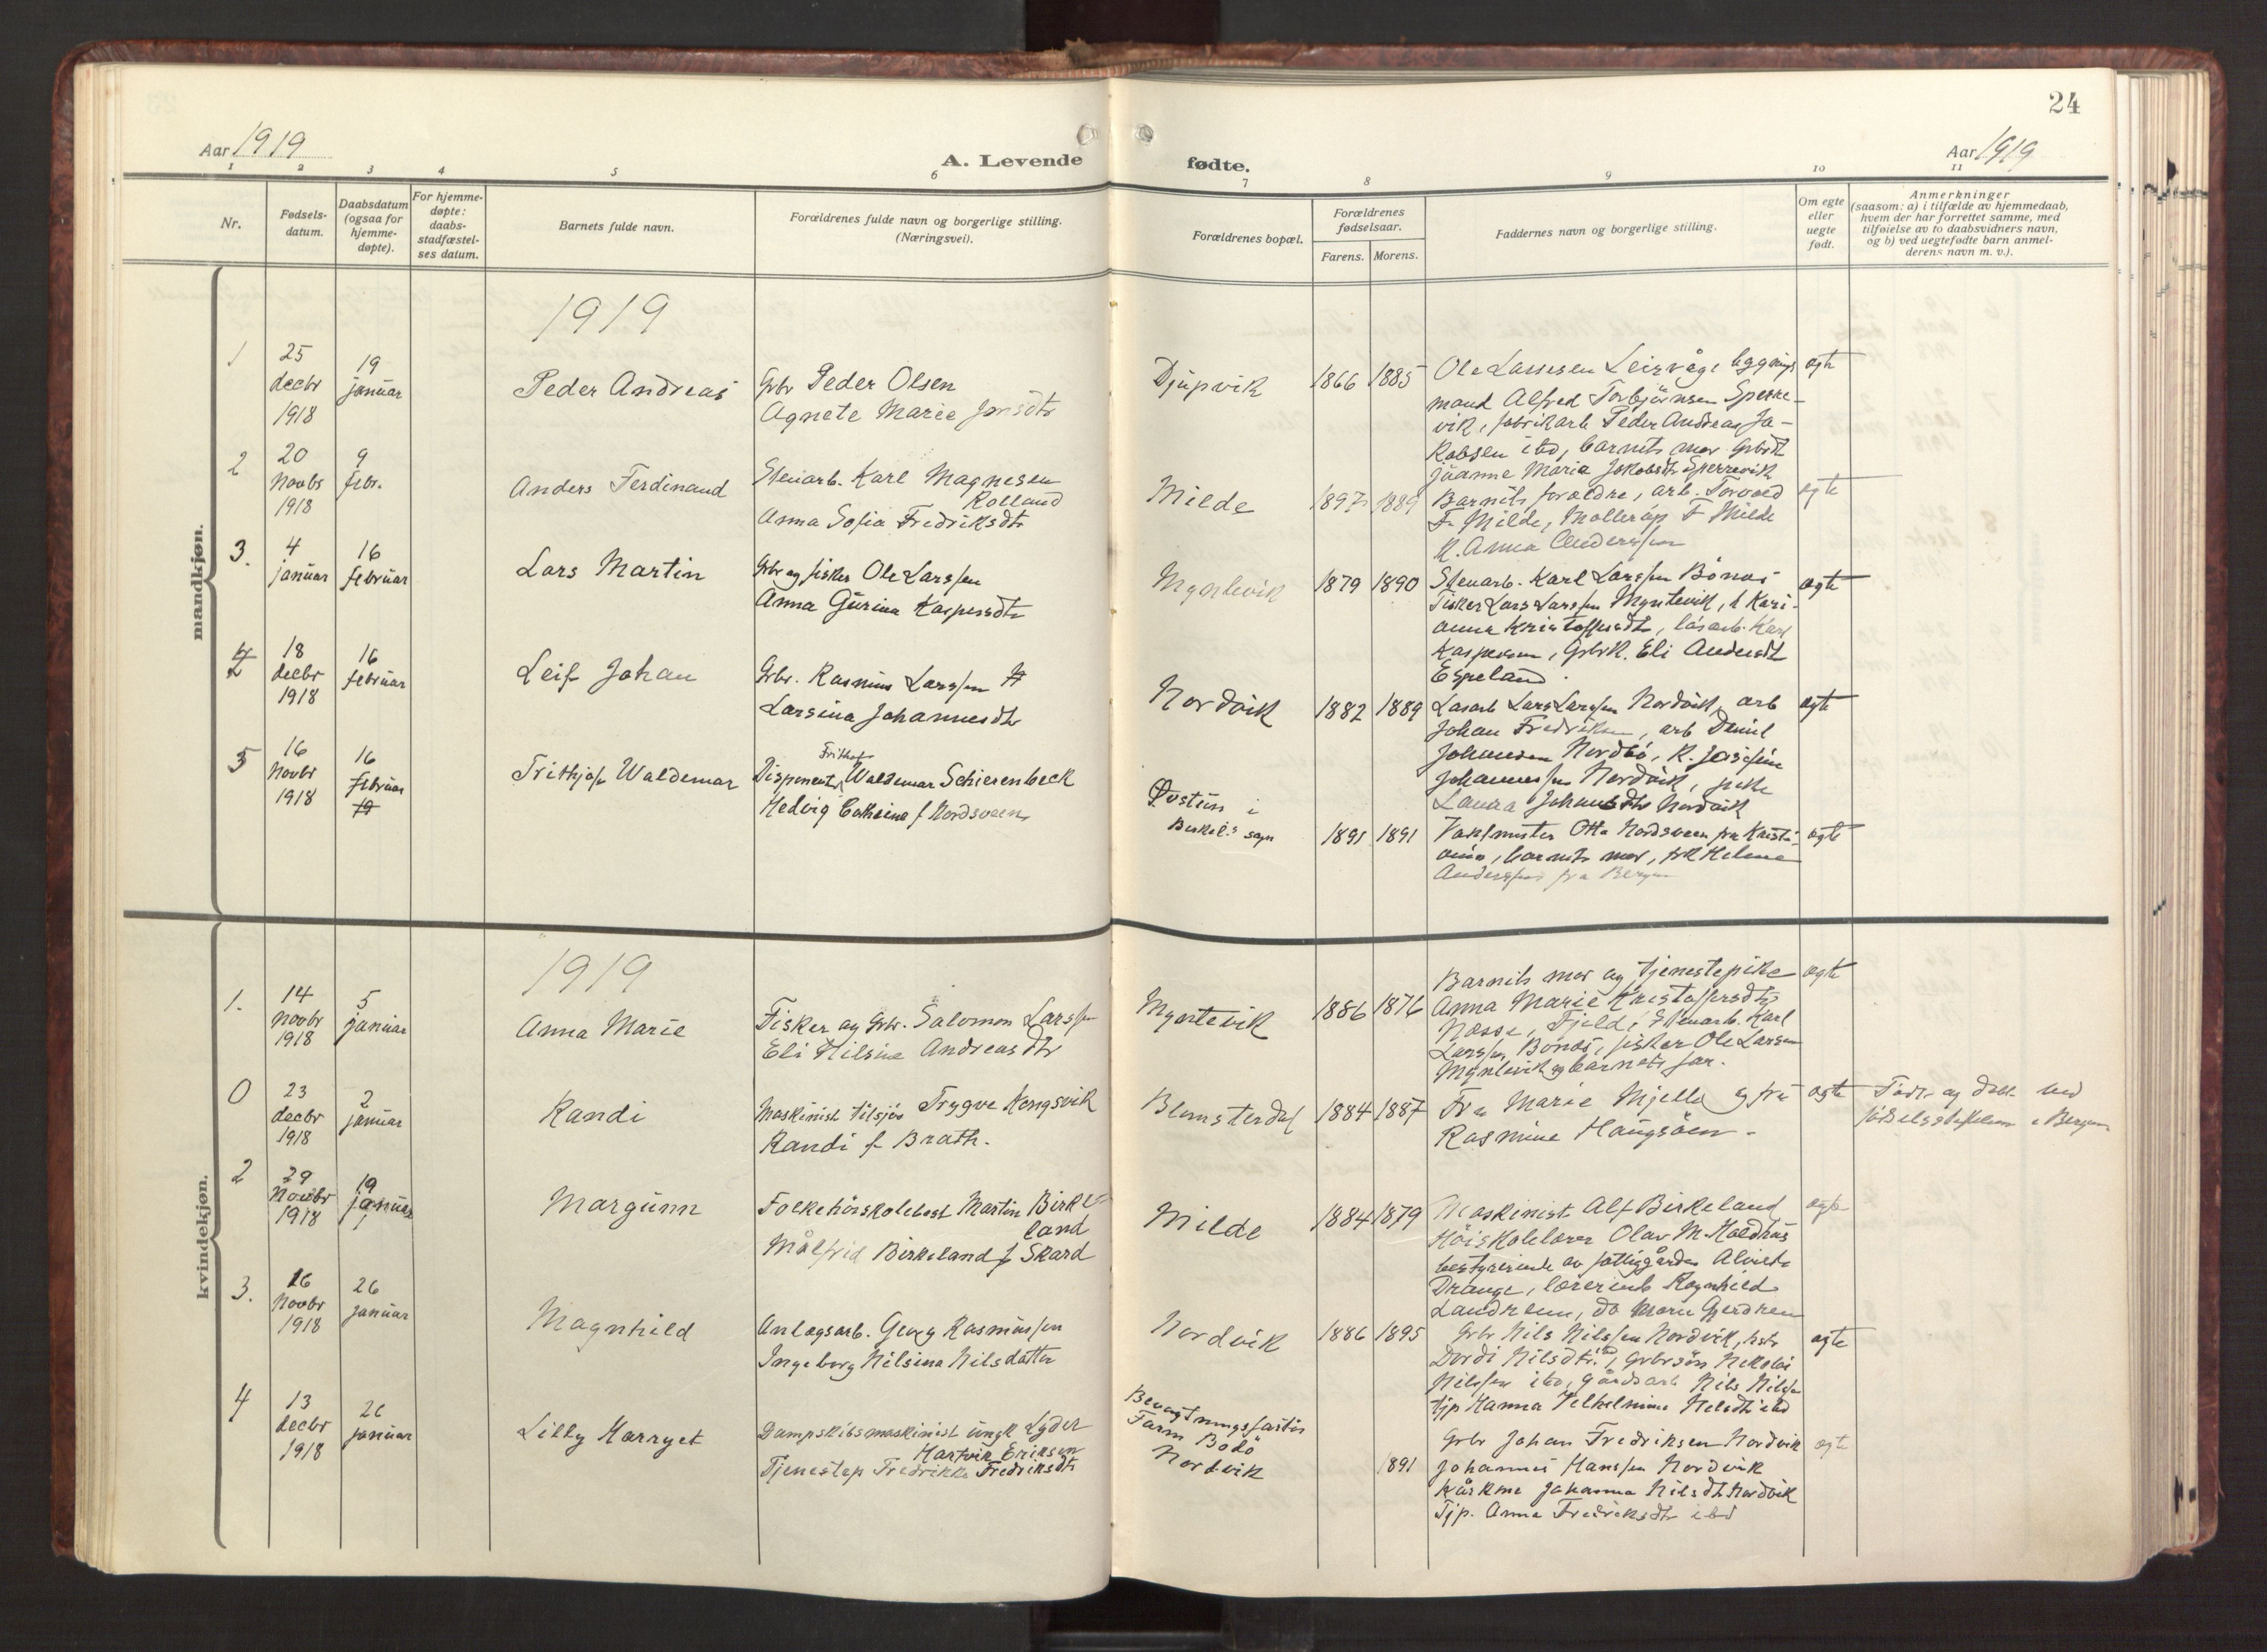 24
Aar 1919
A. Levende fødte.
Aar 1919
1 2 3 4 5 6 7 8 9 10 11
Nr.
Fødsels-
datum.
Daabsdatum
(ogsaa for
hjemme-
døpte).
For hjemme-
døpte:
daabs-
stadfæstel-
ses datum.
Barnets fulde navn.
Forældrenes fulde navn og borgerlige stilling.
(Næringsvei).
Forældrenes bopæl.
Forældrenes
fødselsaar.
Farens. Morens.
Faddernes navn og borgerlige stilling.
Om egte
eller
uegte
født.
Anmerkninger
(saasom: a) i tilfælde av hjemmedaab,
hvem der har forrettet samme, med
tilføielse av to daabsvidners navn,
og b) ved uegtefødte barn anmel-
derens navn m. v.).
mandkjøn.
1919
1
25
decbr
1918
19
januar
Peder Andreas
Grbr Peder Olsen
Agnete Marie Jonsdtr
Djupvik
1866 1885
Ole Larsen Leirvåge bygnings
mand Alfred Torbjörnsen Sperre-
vik, fabrikarb Peder Andreas Ja-
kobsen ibd, barnets mor Gbrdt
Juanne Maria Jakobsdtr Sperrevik
egte
2
20
Novbr
1918
9
febr.
Anders Ferdinand
Stenarb. Karl Magnesen
Rolland
Anna Sofia Fredriksdtr
Milde
1897 1889
Barnets forældre, arb. Torvald
F. Milde, Møllerup F Milde
K. Anna Anderssen
egte
3.
4
januar
16
februar
Lars Martin
Gbr og fisker Ole Larssen
Anna Gurina Kaspersdtr
Myrtevik
1879 1890
Stenarb. Karl Larssen Bönes
Fisker Lars Larssen Myrtevik, k Kari-
anna Kristoffersdtr, lösarb. Karl
Kaspersen, Gbrk. Eli Andersdt
Espeland.
egte
4
18
decbr
1918
16
februar
Leif Johan
Grbr. Rasmus Larssen
Larsina Johannesdtr
Nordvik
1882 1889
Lösarb Lars Larssen Nordvik, arb
Johan Fredriksen, arb Daniel
Johansen Nordbö, K. Josefine
Johannessen Nordvik, pike
Laura Johansdtr Nordvik
egte
5
16
Novbr
1918
16
februar
Frithjof Waldemar
Frithjof
Disponent Waldemar Schierenbeck
Hedvig Cathrine f Nordsveen
Øvstun i
Birkel.s sogn
1891 1891
Vaktmester Otto Nordsveen fra Kristi-
ania, barnets mor, frk Helene
Anderssen fra Bergen
egte
kvindekjøn.
1919
1.
14
Novbr
1918
5
januar
Anna Marie
Fisker og Grbr. Salomon Larssen
Eli Nilsine Andreasdtr
Myrtevik
1886 1876
Barnets mor og tjenestepike
Anna Marie Kristoffersdtr
Nesse, Fjeld, Stenarb. Karl
Larssen Bönes, fisker Ole Larsen
Myrtevik og barnets far.
egte
0
23
decbr
1918
2
januar
Randi
Maskinist tilsjös Trygve Kongsvik
Randi f Brath.
Blomsterdal
1884 1887
Fru Marie Mjelle og fru
Rasmine Haugsöen.
egte
Födt og döbt ved
födselsstiftelsen i Bergen
2
29
Novbr
1918
19
januar
Margunn
Folkehöiskolebest Martin Birke-
land
Målfrid Birkeland f Skard
Milde
1884 1879
Maskinist Alf Birkeland
Höiskolelærer Olav M. Holdhus
bestyrerinde av fattiggården Alvilde
Drange, lærerinde Ragnhild
Landrem, do Marie Gjerdrem
egte
3.
16
Novbr
1918
26
januar
Magnhild
Anlægsarb. Georg Rasmussen
Ingeborg Nilsina Nilsdatter
Nordvik
1886 1895
Grbr Nils Nilssen Nordvik, hstr
Dordi Nilsdtr ibd, Grbrsön Nikolai
Nilssen ibd, gårdsarb Nils Nilssen
tjp Hanna Vilhelmine Nilsdtr ibd
egte
4
13
decbr
1918
26
januar
Lilly Harryet
Dampskibsmaskinist ungk Lyder
Hartvik Eriksen
Tjenestep Fredrikke Fredriksdtr
Bevogtningsfartöi
Farm Bodö
Nordvik
1891
Grbr Johan Fredriksen Nordvik
Johannes Hanssen Nordvik
Kårkone Johanna Nilsdtr Nordvik
Tjp. Anna Fredriksdtr ibd
egte